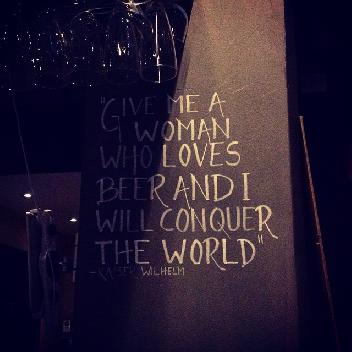 "GIVE ME A
WOMAN
WHO LOVES
BEER AND I
WILL CONQUER
THE WORLD"
- KAISER WILHELM